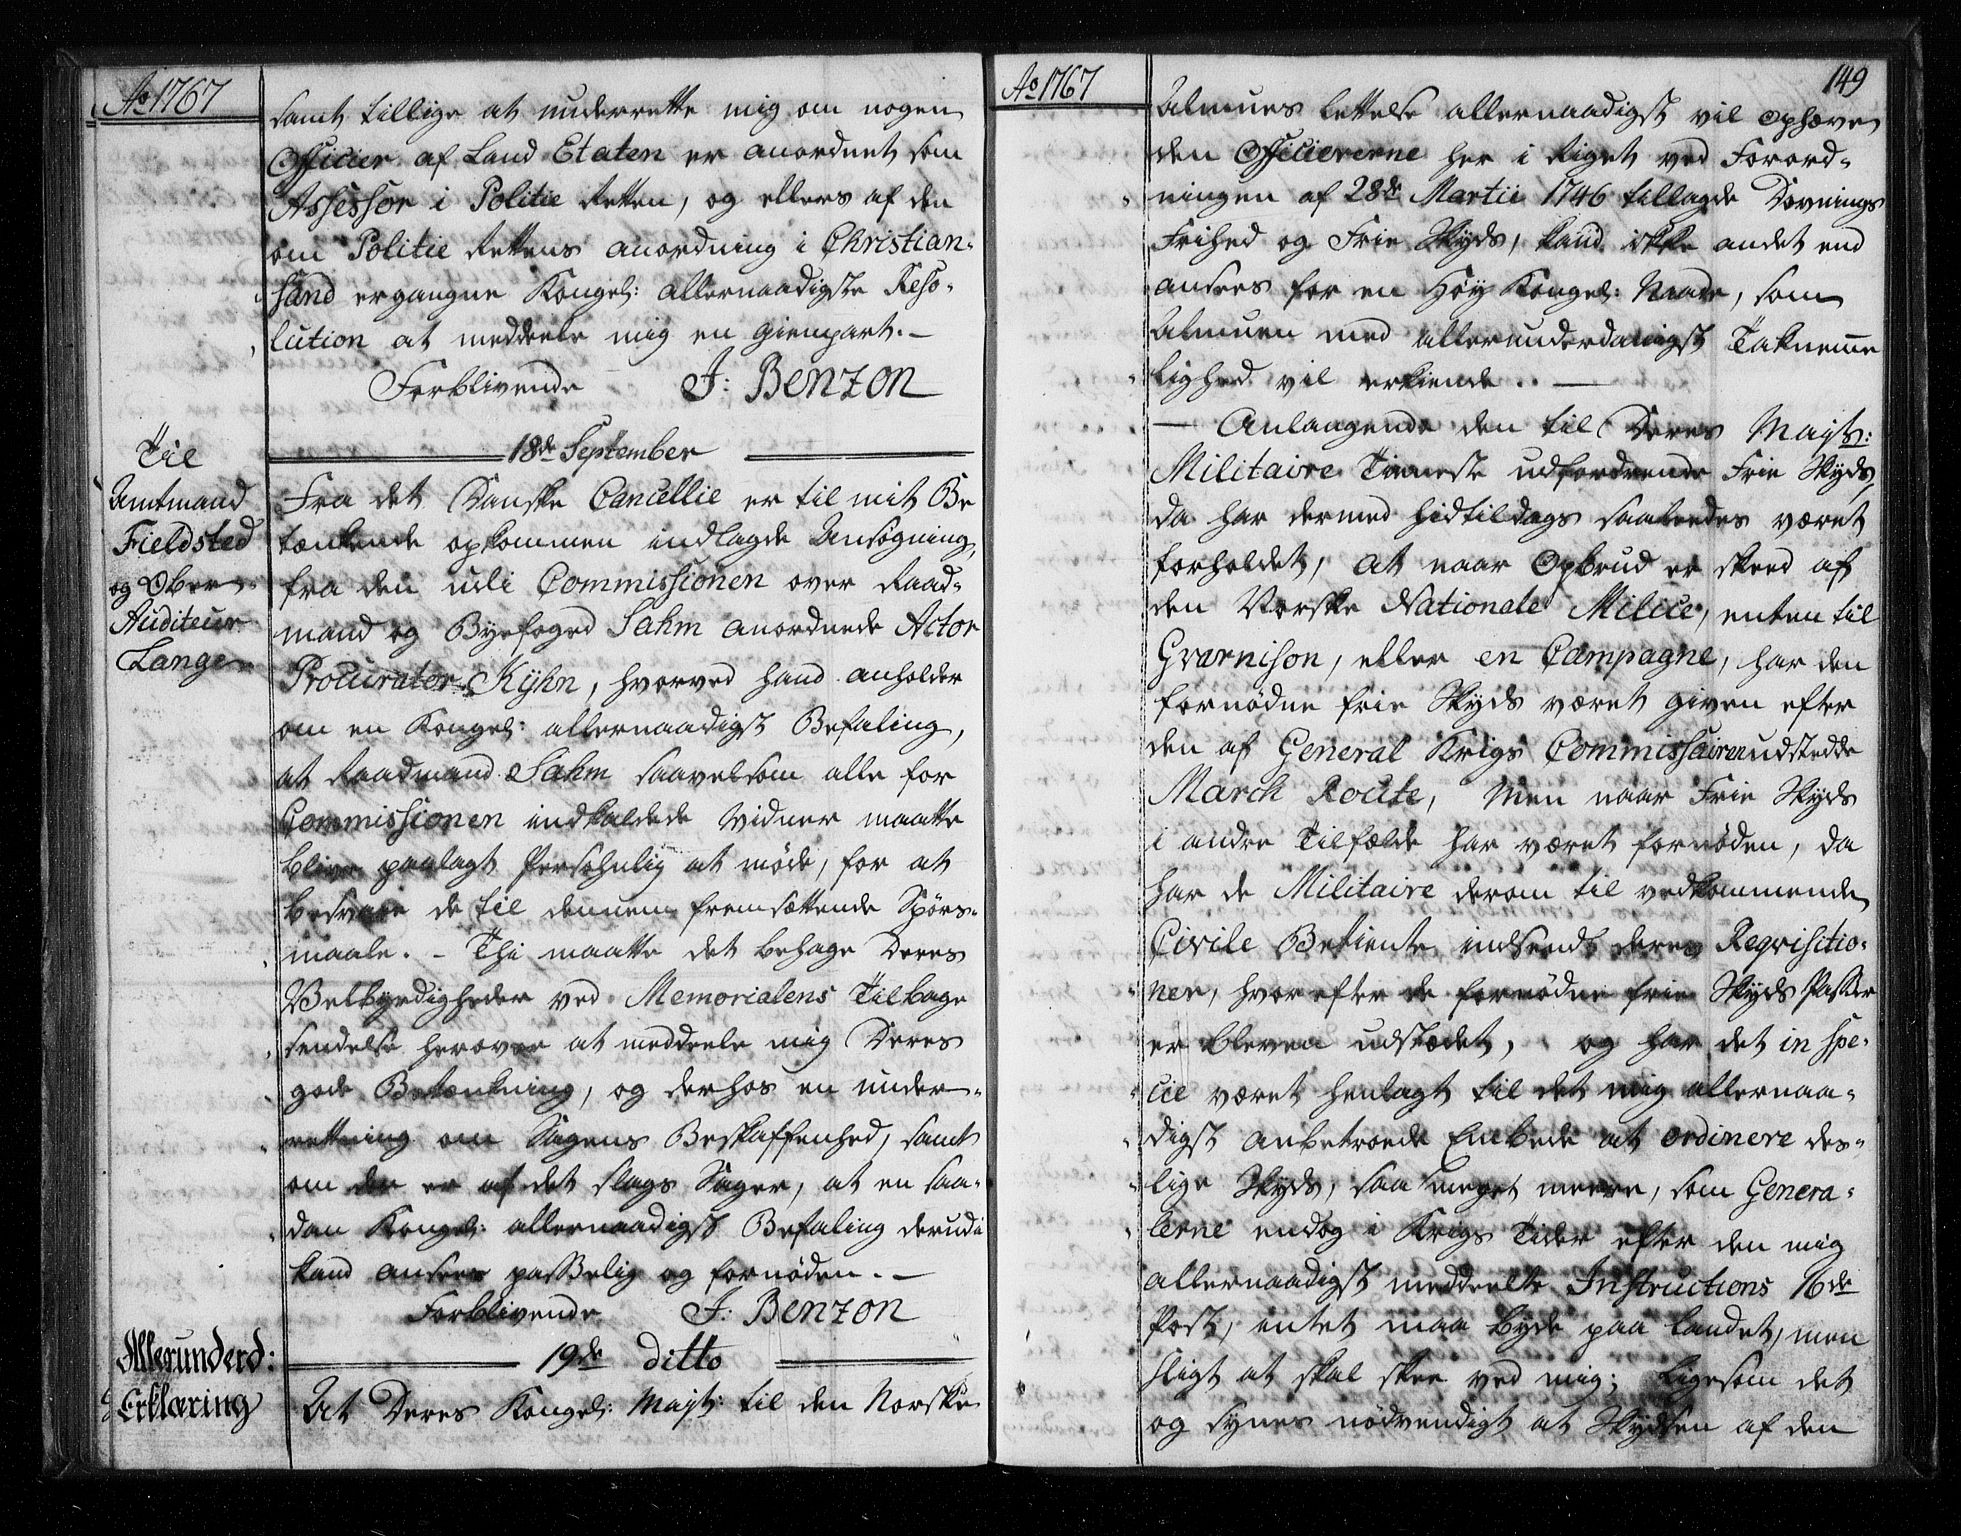 Ao 1767
samt tillige at underrette mig om nogen
Officier af Land Etaten er anordnet som
Assessor i Politie Retten, og ellers af den
om Politie Rettens anordning i Christian-
sand ergangne Kongel: allernaadigste Reso-
lution at meddeele mig en gienpart. –
Forblivende J: Benzon
18de September
Til
Amtmand
Fieldsted
og Ober
Auditeur
Lange
Fra det Danske Cancellie er til mit Be
tænkende opkommen indlagde Ansøgning
fra den udi Commissionen over Raad-
mand og Byefoged Sahm anordnede Actor
Procurator Kyhn, hvorved hand anholder
om en Kongel: allernaadigst Befaling,
at Raadmand Sahm saavelsom alle for
Commissionen indkaldede Vidner maatte
blive paalagt Persohnlig at møde, for at
besvare de til dennem fremsættende Spørs-
maale. – Thi maatte det behage Deres
Velbyrdigheder ved Memorialens Tilbage
sendelse herover at meddeele mig Deres
gode Betænkning, og derhos en under-
rettning om Sagens Beskaffenhed, samt
om den er af det slags Sager, at en saa-
dan Kongel: allernaadigst Befaling derudi
kand ansees passelig og fornøden. –
Forblivende J: Benzon
19de ditto
Allerunderd:
Erklæring
At Deres Kongel: Mayt: til den Norske
Ao 1767
149
Almues lettelse allernaadigst vil ophæve
den Officiererne her i Riget ved Forord-
ningen af 28de Martii 1746 tillagde Dovnings
Frihed og Frie Skyds, kand ikke andet end
ansees for en Høy Kongel: Naade, som
Almuen med allerunderdanigst Taknemme
lighed vil erkiende. –
– Anlangende den til Deres Mayts:
Militaire Tieneste udfordrende Frie Skyds,
da har dermed hidtildags saaledes været
forholdet, at naar Opbrud er skeed af
den Norske Nationale Milice, enten til
Gvarnison, eller en Campagne, har den
fornødne frie Skyds været given efter
den af General Krigs Commissairen udstedde
March Route, Men naar Frie Skyds
i andre Tilfælde har været fornøden, da
har de Militaire derom til vedkommende
Civile Betiente indsendt deres Reqvisitio-
ner, hvorefter de fornødne frie Skyds Passer
er bleven udstædet, og har det in spe-
cie været henlagt til det mig allernaa-
digst anbetroede Embede at ordinere des-
lige Skyds, saa meget meere, som Genera-
lerne endog i Krigs Tider efter den mig
allernaadigst meddeelte Instructions 16de
Post, intet maa byde paa landet, men
sligt at skal skee ved mig; Ligesom det
og synes nødvendigt at Skydsen af den